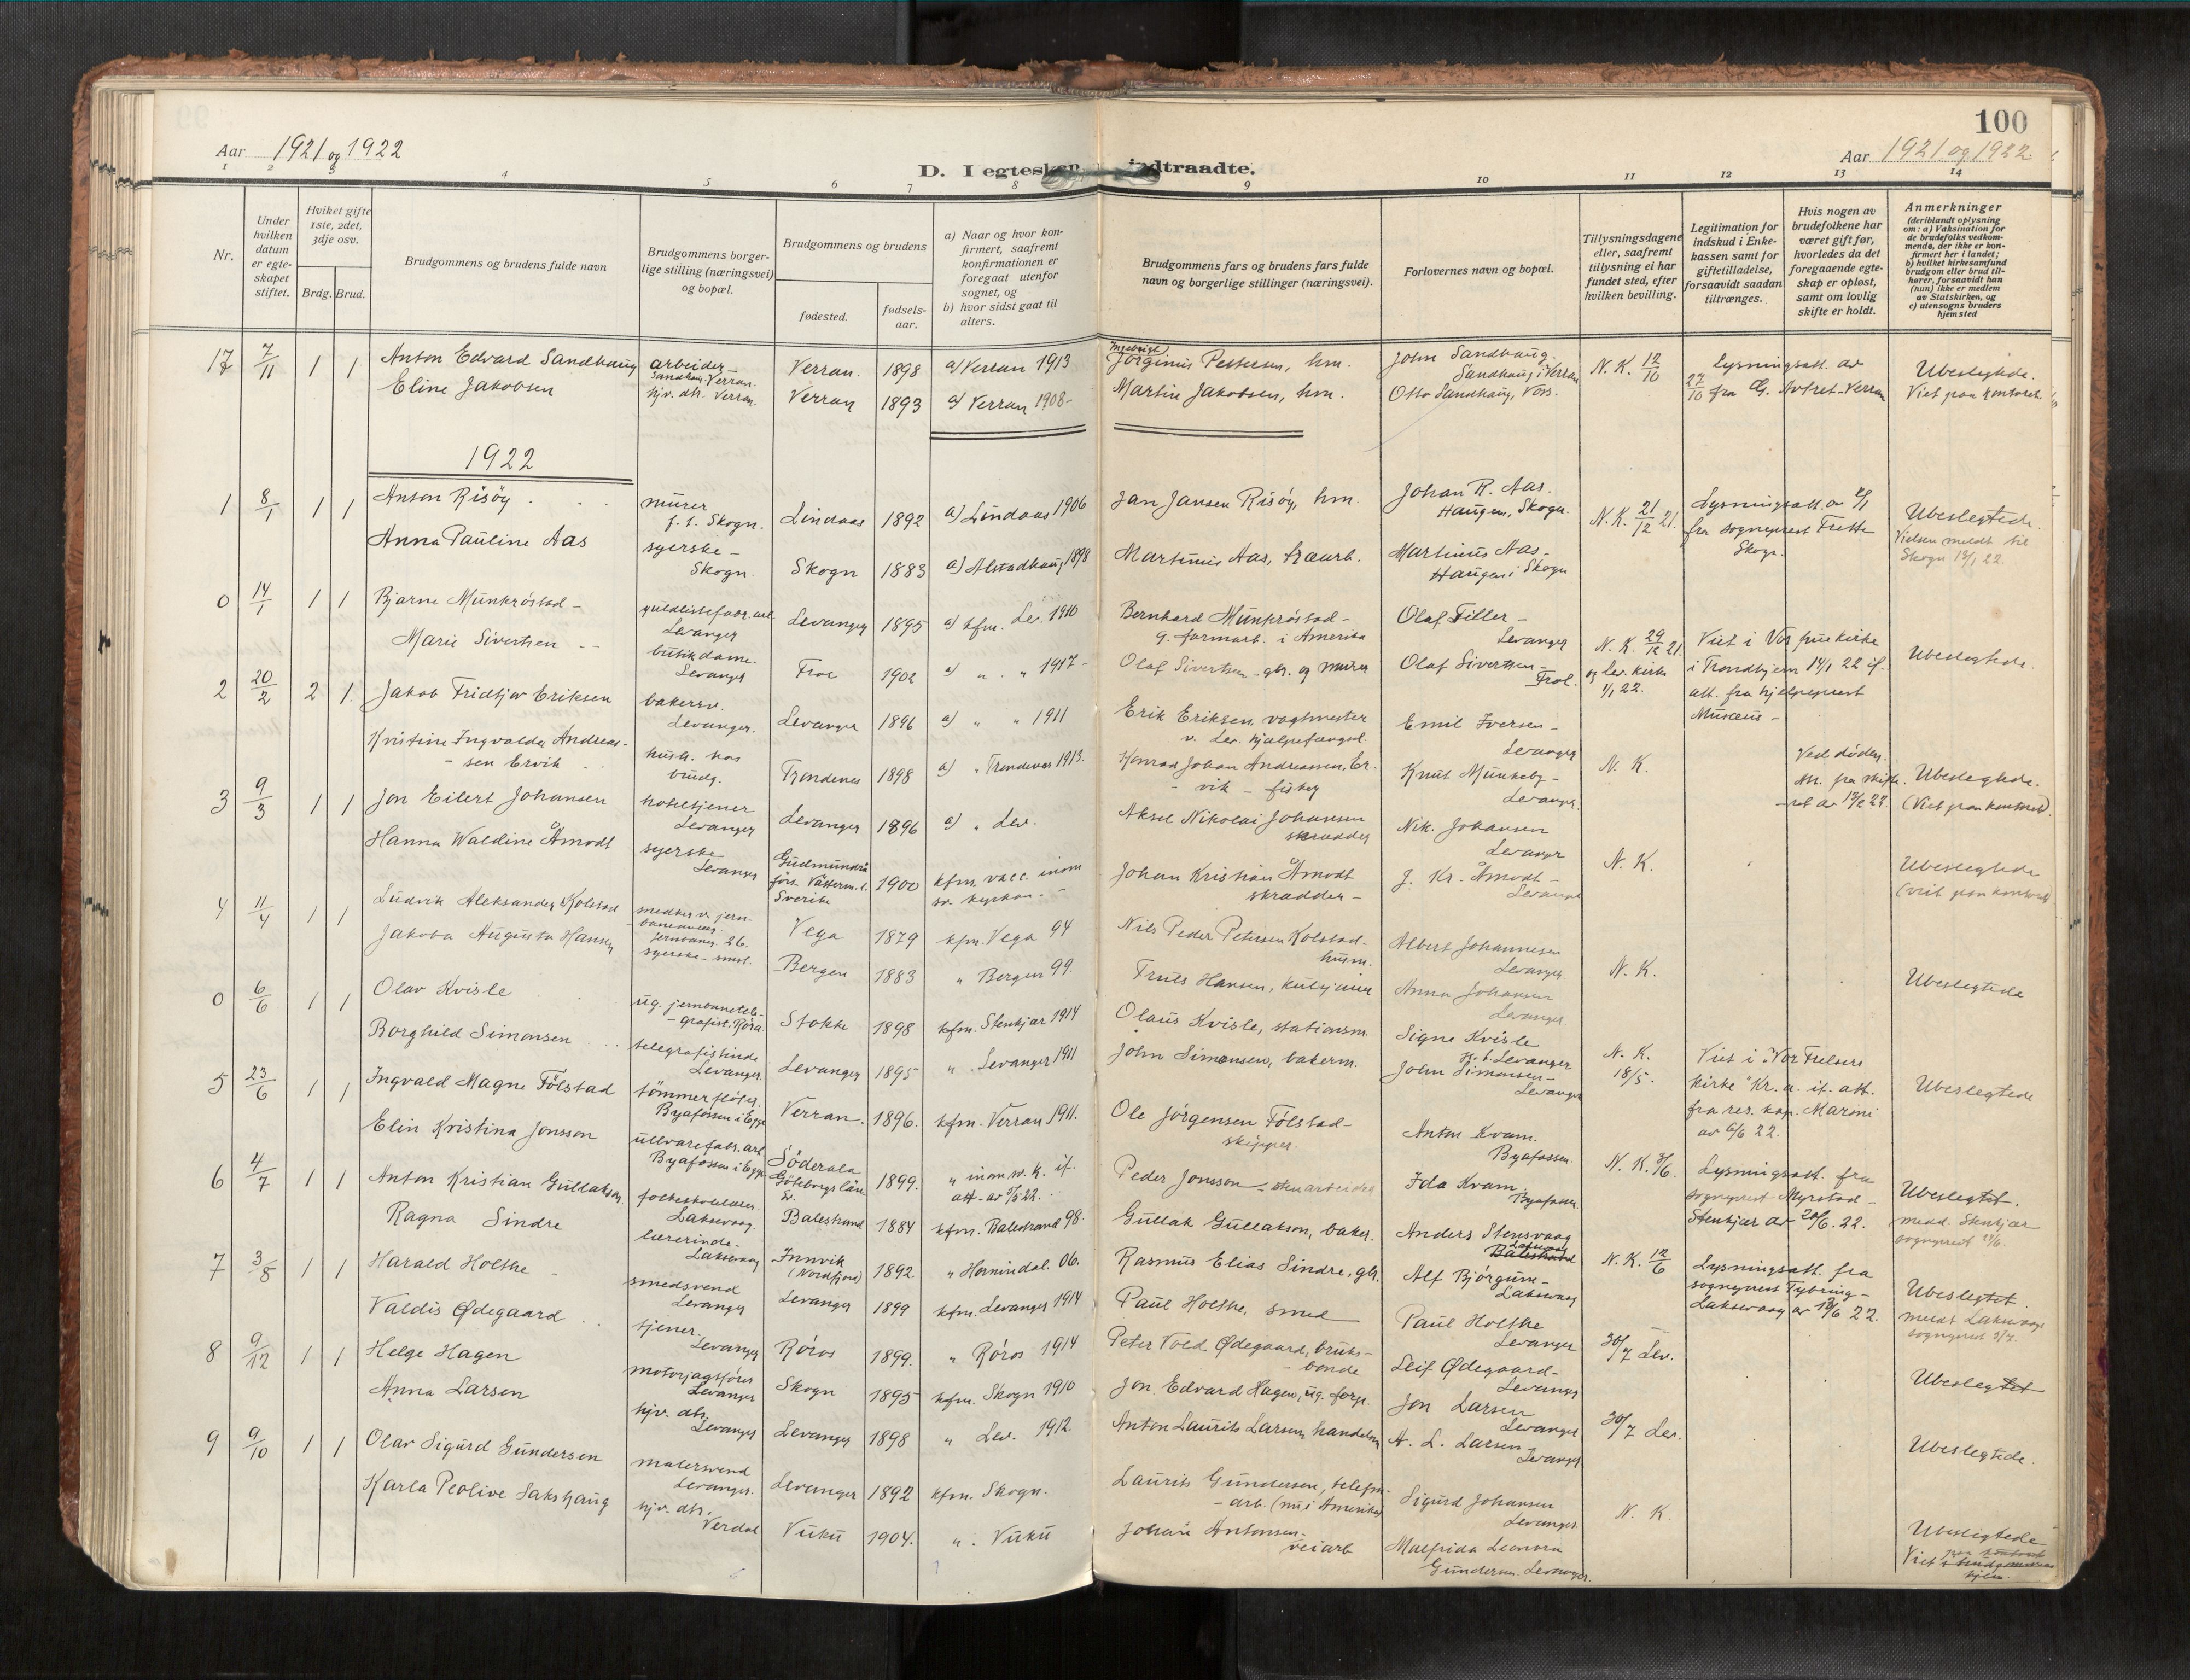 100
Aar 1921 og 1922
D. I egteskap indtraadte.
Aar 1921 og 1922
1 2 3 4 5 6 7 8 9 10 11 12 13 14
Nr.
Under hvilken datum er egteskapet stiftet.
Hviket gifte 1ste, 2det, 3dje osv.
Brdg. Brud.
Brudgommens og brudens fulde navn
Brudgommens borgerlige stilling (næringsvei) og bopæl.
Brudgommens og brudens
fødested.
fødselsaar.
a) Naar og hvor konfirmert, saafremt konfirmationen er foregaat utenfor sognet, og
b) hvor sidst gaat til alters.
Brudgommens fars og brudens fars fulde navn og borgerlige stillinger (næringsvei).
Forlovernes navn og bopæl.
Tillysningsdagene eller, saafremt tillysning ei har fundet sted, efter hvilken bevilling.
Legitimation for indskud i Enkekassen samt for giftetilladelse, forsaavidt saadan tiltrænges.
Hvis nogen av brudefolkene har været gift før, hvorledes da det foregaaende egteskap er opløst, samt om lovlig skifte er holdt.
Anmerkninger (deriblandt oplysning om: a) Vaksination for de brudefolks vedkommende, der ikke er konfirmert her i landet; b) hvilket kirkesamfund brudgom eller brud tilhører, forsaavidt han (hun) ikke er medlem av Statskirken, og c) utensogns bruders hjemsted
17 7/11 1 1 Anton Edvard Sandhaug arbeider Sandhaug Verran. Verran. 1898 a) Verran 1913 Ingebrigt Jørginus Pettersen, hm. John Sandhaug. Sandhaug i Verran N. K. 12/10 Lysningsatt. av 27/10 fra Verran Ubeslegtede.
Eline Jakobsen hjv. dtr. Verran. Verran 1893 a) Verran 1908 Martin Jakobsen, hm. Otto Sandhaug, Viet paa kontoret
1922
1 8/1 1 1 Anton Risöy murer Skogn. Lindaas 1892 a) Lindaas 1906 Jan Jansen Risöy, hm. Johan R. Aas. Haugen, Skogn. N. K. 21/12 21. Lysningsatt. av fra sogneprest Skogn. Ubeslegtede.
Anna Pauline Aas syerske – Skogn. Skogn 1883 a) Alstadhaug 1898 Martinus Aas, træarb. Martinus Aas – Haugen i Skogn Vielsen meldt til Skogn 22.
0 14/1 1 1 Bjarne Munkröstad – Levanger Levanger 1895 a) kfm. Lev. 1910 Bernhard Munkröstad – farmarb. i Amerika Olaf Tiller – Levanger N. K. 21. og Lev. kirke 1/1 22. Viet i Vor frue kirke i Trondhjem 14/1 22 if. att. fra hjelpeprest Musæus – Ubeslegtede.
Marie Sivertsen butikdame. Levanger Frol 1902 a) „ „ 1917 – Olaf Sivertsen – gbr. og murer Olaf Sivertsen – Frol.
2 20/2 2 1. Jakob Fridtjov Eriksen bakersv. Levanger. Levanger 1896 a) „ „ 1911 Erik Eriksen, vagtmester v. Lev. hjælpefængsel. Emil Iversen – Levanger N. K. Ved døden. 22. Ubeslegtede. (Viet paa kontoret)
Kristine Ingvalda Andreassen Ervik hush. hos brudg. Trondenes 1898 a) „ Trondenes 1913. Konrad Johan Andreassen, Ervik – fisker Knut Munkeby – Levanger.
3 9/3 1 1 Jon Eilert Johansen hoteltjener Levanger Levanger 1896 a) „ Lev. Aksel Nikolai Johansen skrædder Nik. Johansen Levanger N. K. Ubeslegtede (viet paa kontoret)
Hanna Waldine Åmodt syerske Levanger Gudmundrå Sverike 1900 kfm. vacc. inom sv. kyrkan. – Johan Kristian Åmodt skrædder – J. Kr. Åmodt – Levanger
4 11/4 1 1 Ludvik Aleksander Kolstad Vega 1879 kfm. Vega 94 Nils Peder Petersen Kolstad – husm. Albert Johannesen Levanger N. K. Ubeslegtede
Jakoba Augusta Hansen syerske Bergen 1883 „ Bergen 99. Truls Hansen, Anna Johansen Levanger.
0 6/6 1 1 Olav Kvisle ug. jernbanetelegrafist, Röra Stokke 1898 kfm. Stenkjær 1914 Olaus Kvisle, stationsm. Signe Kvisle Levanger N. K. 18/5. Viet i „Vor Frelsers kirke“ Kr.a. if. att. fra res. kap. Maroni av 6/6 22. Ubeslegtede
Borghild Simonsen telegrafistinde Levanger. Levanger 1895 „ Levanger 1911 John Simonsen, bakerm. John Simonsen – Levanger
5 23/6 1 1 Ingvald Magne Fölstad tömmerfløter. Byafossen i Egge Verran. 1896. kfm. Verran 1911. Ole Jörgensen Fölstad – skipper. Anton Kvam. Byafossen. N. K. Lysningsatt. fra sogneprest Myrstad – Stenkjær av 20/6. 22. Ubeslegtet.
Elin Kristina Jonsson uldvarefabr. arb. Byafossen i Egge Söderala Göteborgs län Sv. 1899. „ inom sv. k. if. att. av 22. Peder Jonsson – Ida Kvam. Byafossen medd. Stenkjær sogneprest
6 4/7 1 1 Anton Kristian Gullakson folkeskolelærer. Laksevaag. Balestrand 1884 kfm. Balestrand 98. Gullak Gullakson, baker. Anders Stensvaag Laksevaag Balestrand N. K. 12/6 Lysningsatt. fra sogneprest Tybring – Laksevaag av 22. Ubeslegtet.
Ragna Sindre lærerinde. Laksevaag Innvik (Nordfjord) 1892. „ Hornindal. 06. Rasmus Elias Sindre, gbr. Alf Björgum – Laksevaag meldt Laksevaag sogneprest
7 3/8 1 1 Harald Holthe smedsvend Levanger Levanger 1899 kfm. Levanger 1914 Paul Holthe, smed Paul Holthe Levanger 30/7 Lev. Ubeslegtet
Valdis Ødegaard tjener. Levanger Röros 1899. „ Röros 1914 Peter Vold Ødegaard, bruksbonde Leif Ødegaard – Levanger
8 9/12 1 1 Helge Hagen Levanger Skogn 1895 kfm. Skogn 1910 Jon Edvard Hagen, Jon Larsen Levanger 30/7 Lev. Ubeslegtede.
Anna Larsen hjv. dtr. Levanger Levanger 1898 „ Lev. 1912. Anton Laurits Larsen, handelsm. A. L. Larsen Levanger
9 9/10 1 1 Olav Sigurd Gundersen malersvend Levanger. Levanger 1892 kfm. Skogn. Laurits Gundersen, arb. (nu i Amerika) Sigurd Johansen Levanger N. K. Ubeslegtede
Karla Peolive Sakshaug hjv. dtr. Verdal Vuku 1904. „ Vuku Johan Antonsen – veiarb Malfrida Leonora Gundersen. Levanger. Viet hjem.